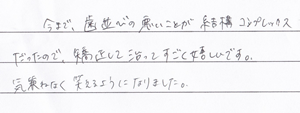 今まで、歯並びの悪いことが結構コンプレックス
だったので、矯正して治ってすごく嬉しいです。
気兼ねなく笑えるようになりました。